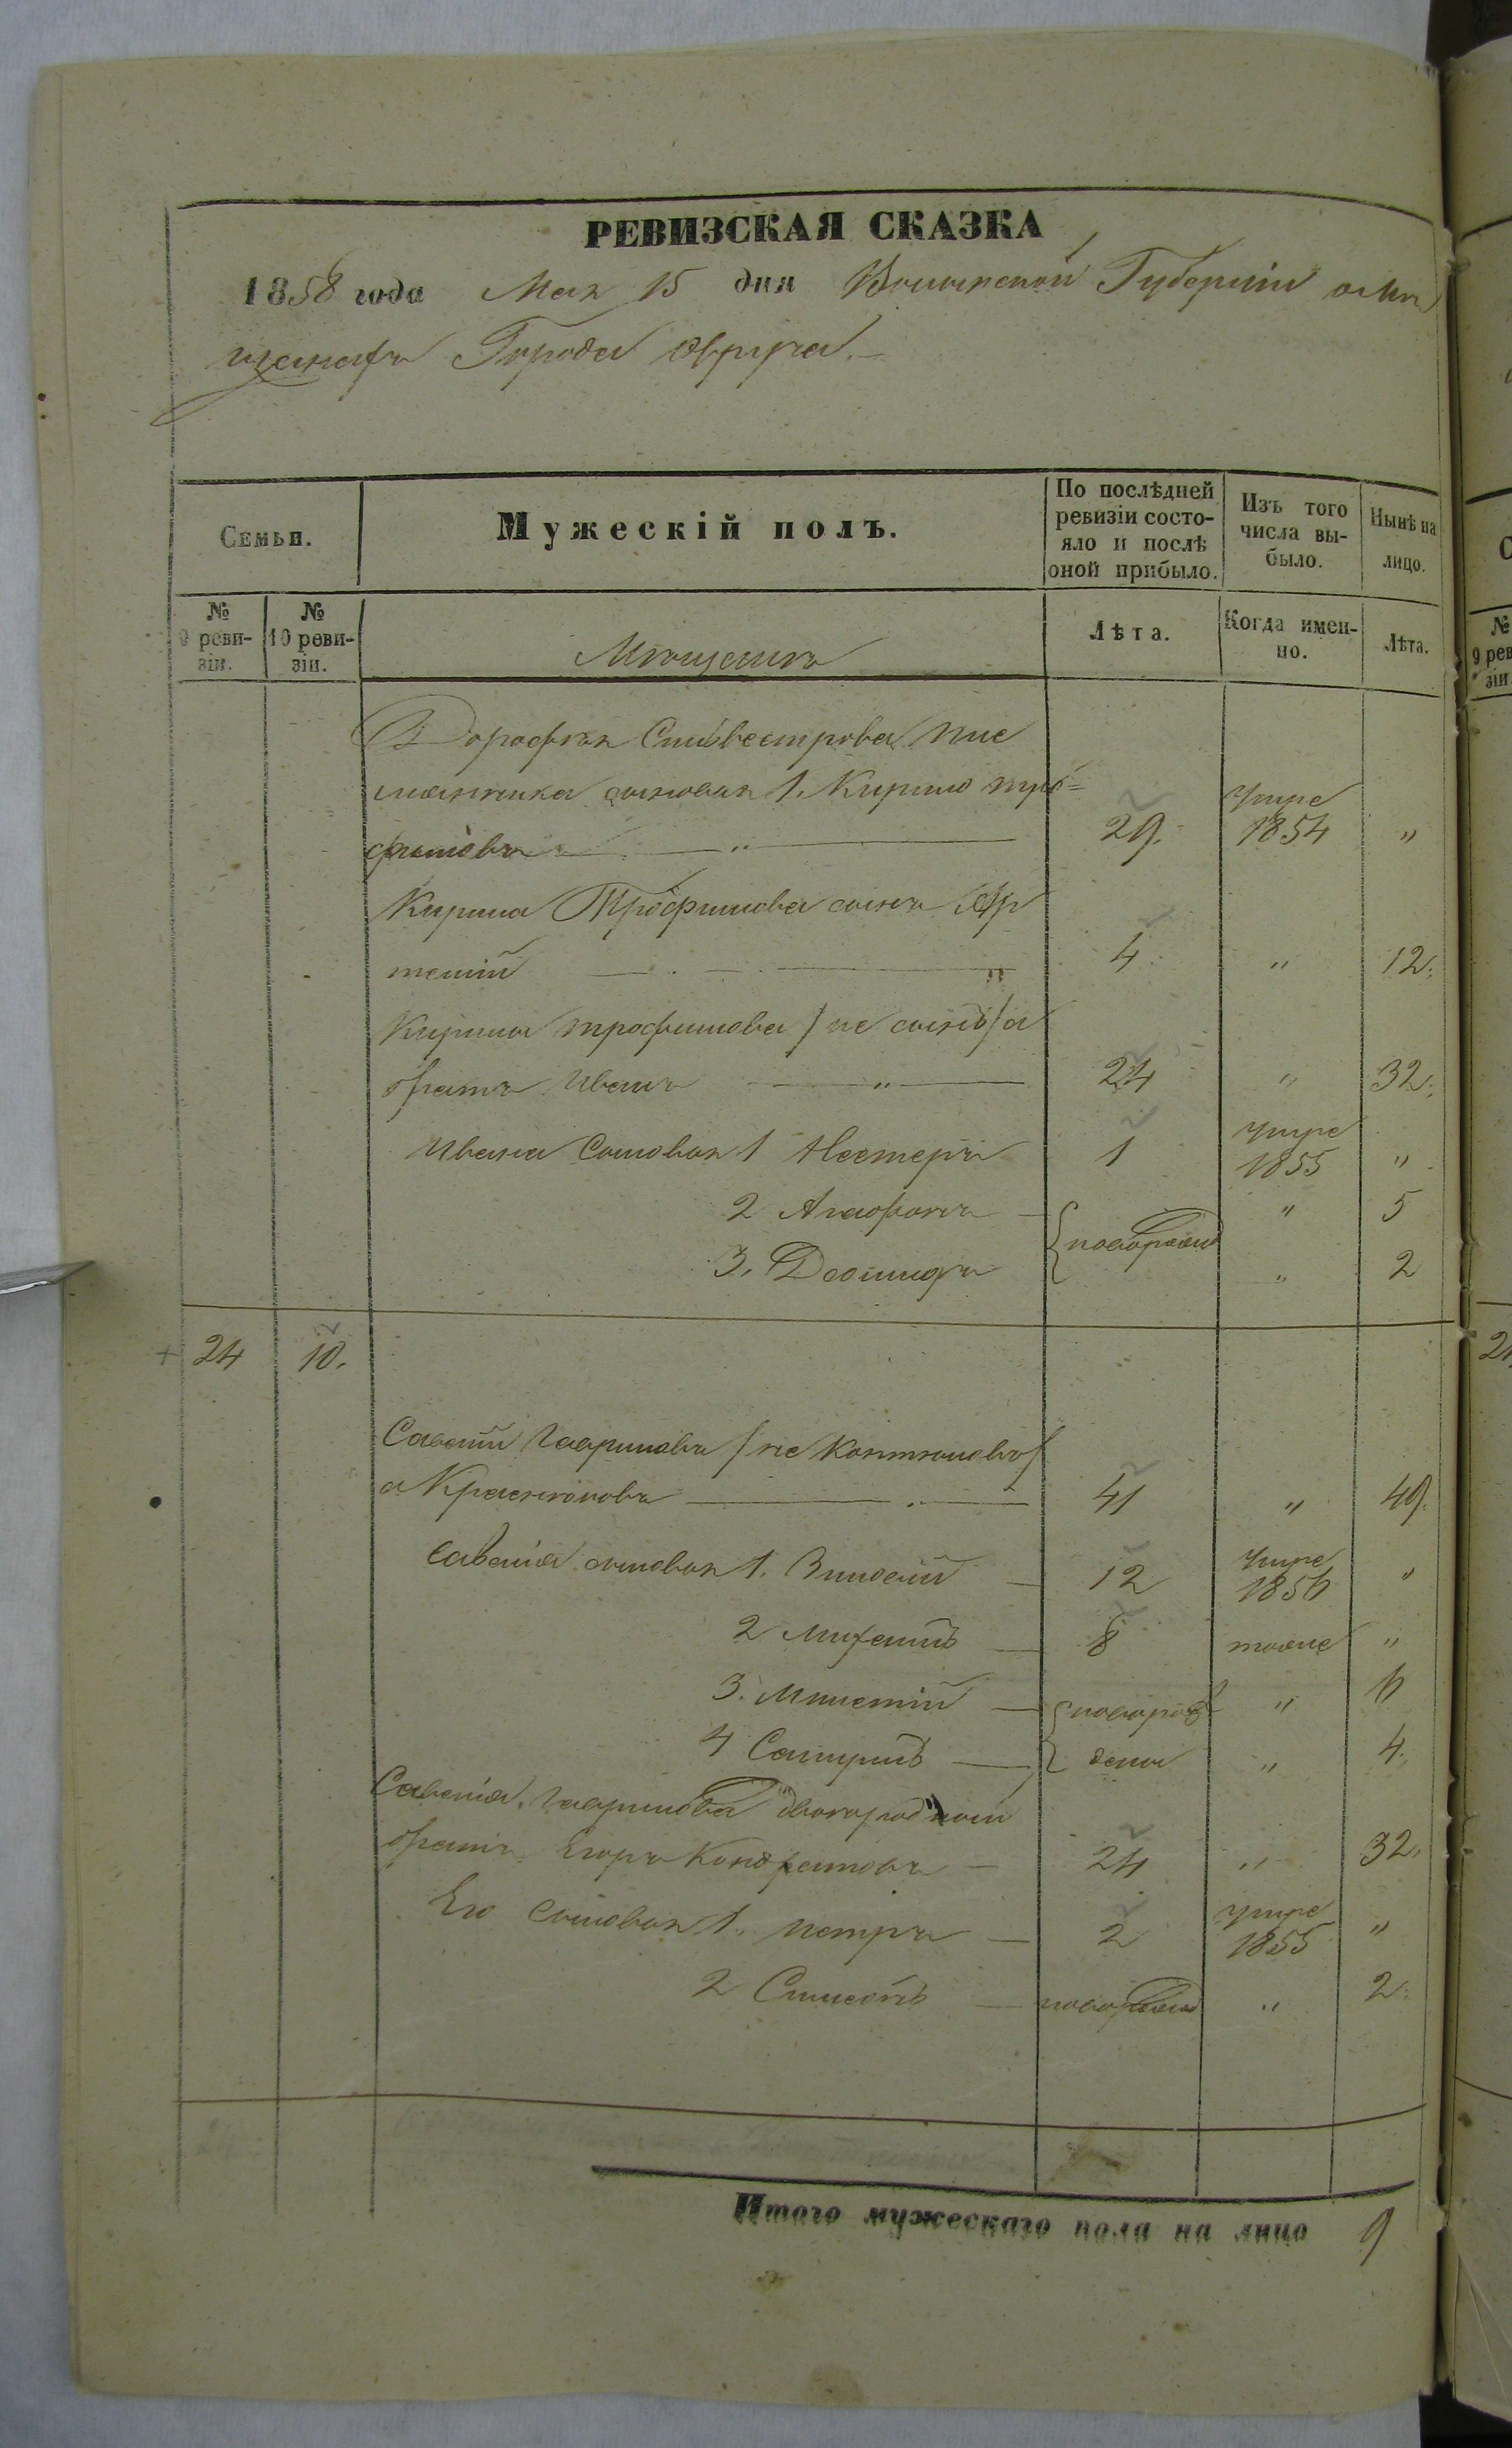 РЕВИЗСКАЯ СКАЗКА
1858 года Мая 15 дня Волынской Губерніи о мѣ
щанахъ Города Овруча.
Семьи.
Мужескій полъ.
По послѣдней ревизіи состо-
яло и послѣ оной прибыло.
Изъ того числа вы-
было.
Нынѣ на лицо.
№ 9 реви-
зіи.
№ 10 реви-
зіи.
Мѣщанъ
Лѣта.
Когда имен-
но.
Лѣта.
Дорофѣя Сильвестрова
сыновья 1. Кирило Тро=
фимовъ — " — 29. умре 1854 "
Кирила Трофимова сынъ Ар
темій — " 4. " 12.
Кирила Трофимова / не сынъ / а
братъ Иванъ — " — 24 " 32.
Ивана Сыновья 1 Нестеръ 1 умре 1855 "
2 Агафонъ — " 5
3. Леонидъ " 2
новорожден
24 10.
Саватій Гавриловъ / не Контковъ /
а Красниковъ — 41 " 49.
Саватія сыновья 1. Зиновій — 12 умре 1856 "
2 Михаилъ — 8 тоже "
3. — новорож " 6
4 — дены " 4.
Саватія Гаврилова двоюродный
братъ Егоръ Кондратовъ — 24 " 32.
Его Сыновья 1. Петръ — 2 умре 1855 "
2 — новорожден " 2.
Итого мужескаго пола на лицо 9